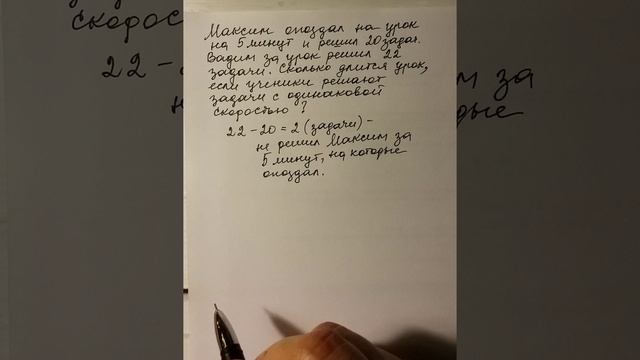 Максим опоздал на урок
на 5 минут и решил 20 задач.
Вадим за урок решил 22
задачи. Сколько длится урок,
если ученики решают
задачи с одинаковой
скоростью?
22 - 20 = 2 (задачи) -
не решил Максим за
5 минут, на которые
опоздал.